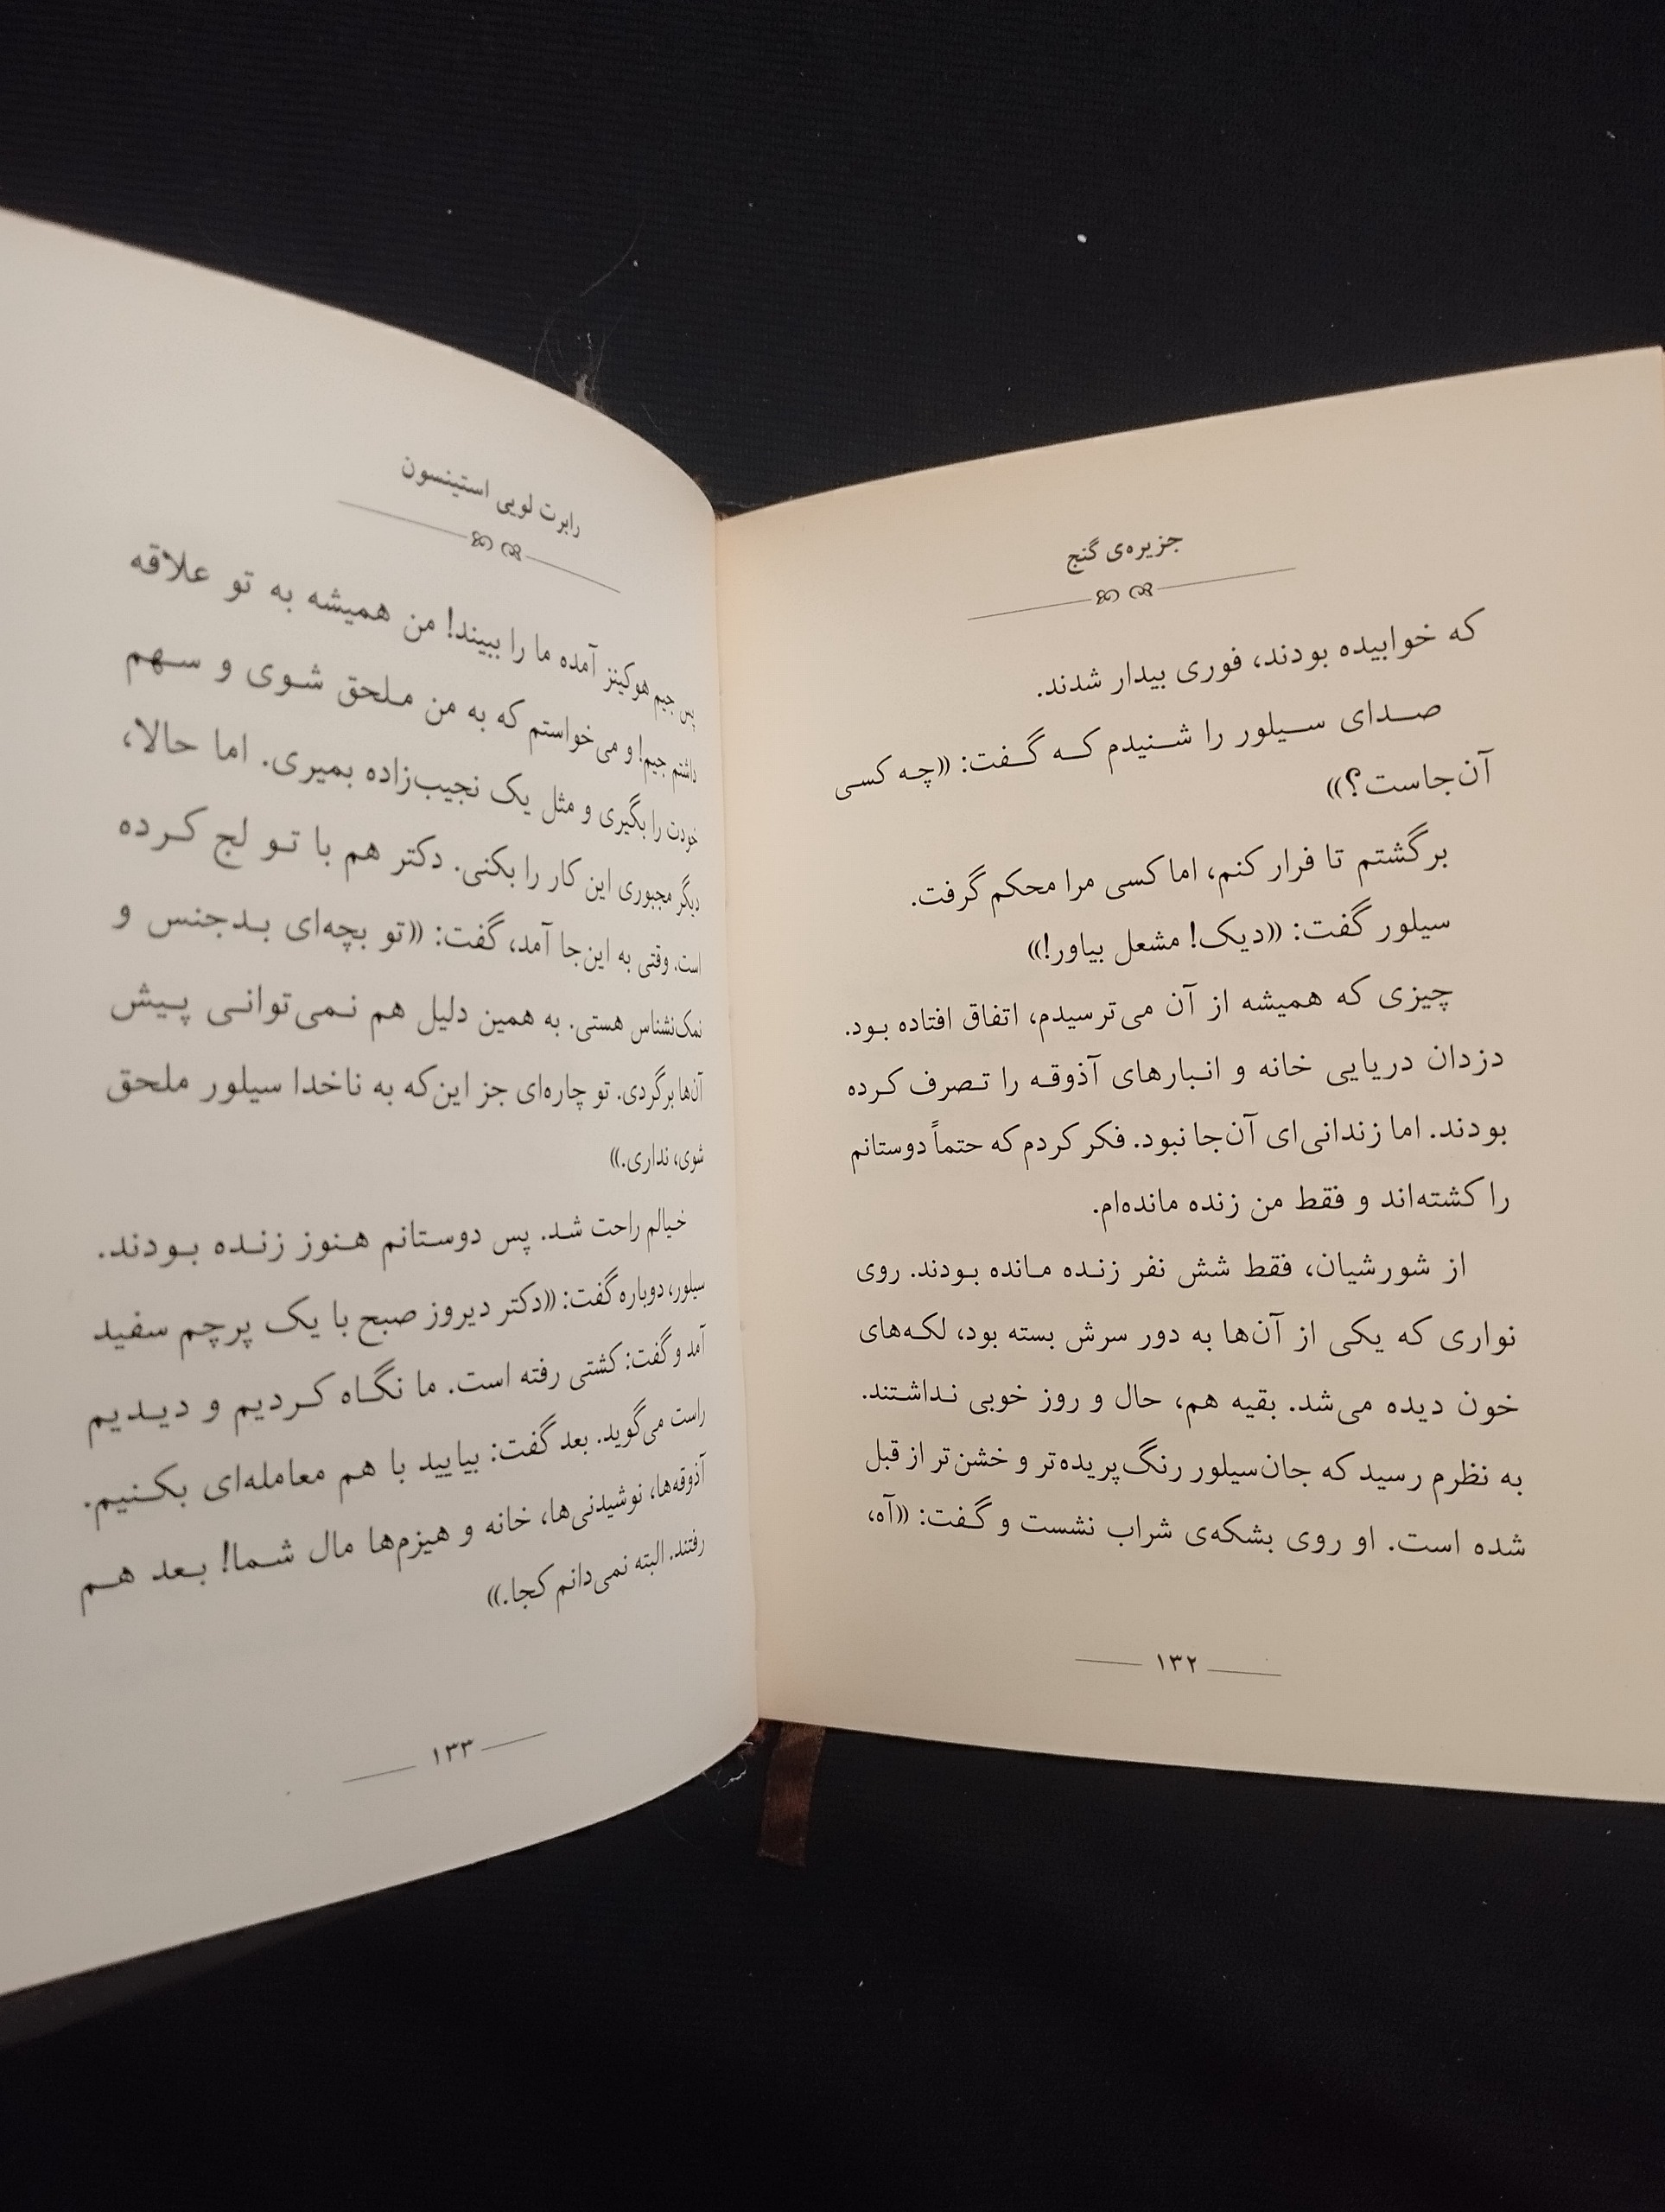 جزیره‌ی گنج
که خوابیده بودند، فوری بیدار شدند.
صدای سیلور را شنیدم که گفت: «چه کسی
آن‌جاست؟»
برگشتم تا فرار کنم، اما کسی مرا محکم گرفت.
سیلور گفت: «دیک! مشعل بیاور!»
چیزی که همیشه از آن می‌ترسیدم، اتفاق افتاده بود.
دزدان دریایی خانه و انبارهای آذوقه را تصرف کرده
بودند. اما زندانی‌ای آن‌جا نبود. فکر کردم که حتماً دوستانم
را کشته‌اند و فقط من زنده مانده‌ام.
از شورشیان، فقط شش نفر زنده مانده بودند. روی
نواری که یکی از آن‌ها به دور سرش بسته بود، لکه‌های
خون دیده می‌شد. بقیه هم، حال و روز خوبی نداشتند.
به نظرم رسید که جان‌سیلور رنگ‌پریده‌تر و خشن‌تر از قبل
شده است. او روی بشکه‌ی شراب نشست و گفت: «آه،
۱۳۲
رابرت لویی استینسون
پس جیم هوکینز آمده ما را ببیند! من همیشه به تو علاقه
داشتم جیم! و می‌خواستم که به من ملحق شوی و سهم
خودت را بگیری و مثل یک نجیب‌زاده بمیری. اما حالا،
دیگر مجبوری این کار را بکنی. دکتر هم با تو لج کرده
است. وقتی به این‌جا آمد، گفت: «تو بچه‌ای بدجنس و
نمک‌نشناس هستی. به همین دلیل هم نمی‌توانی پیش
آن‌ها برگردی. تو چاره‌ای جز این‌که به ناخدا سیلور ملحق
شوی، نداری.»
خیالم راحت شد. پس دوستانم هنوز زنده بودند.
سیلور، دوباره گفت: «دکتر دیروز صبح با یک پرچم سفید
آمد و گفت: کشتی رفته است. ما نگاه کردیم و دیدیم
راست می‌گوید. بعد گفت: بیایید با هم معامله‌ای بکنیم.
آذوقه‌ها، نوشیدنی‌ها، خانه و هیزم‌ها مال شما! بعد هم
رفتند. البته نمی‌دانم کجا.»
۱۳۳